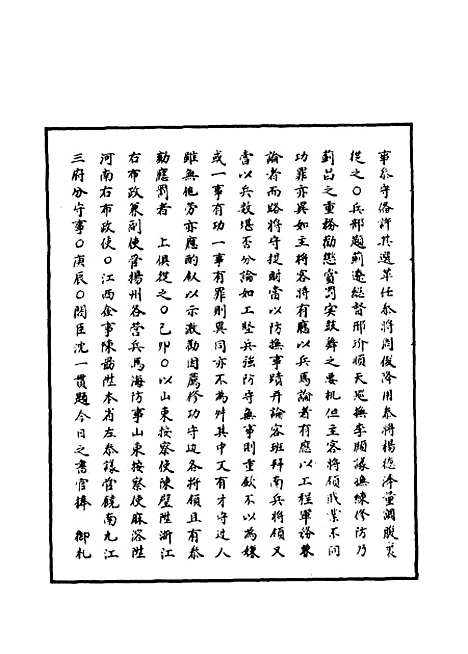 事參守備許其選革任參將周俊降用參將楊德澤量調腹裏
從之○兵部題薊遼總督邢玠順天巡撫李頤議疎修防乃
薊昌之重務勸懲賞罰实鼓舞之要机但主客將領職業不同
功罪亦異如主將客將有應以兵馬論者有應以工程軍務兼
論者而路將守提則當以防撫事蹟并論客班拜南兵將領又
當以兵数堪否分論如工堅兵強防守無事則重欽不以為嫌
或一事有功一事有罪則異同亦不為舛其中又有才守过人
雖無他劳亦應酌叙以示激勸因薦修功守边各將領且有參
劾應罰者 上俱從之○己卯○以山東按察使陳璧陞浙江
右布政兼副使管揚州各营兵馬海防事山東按察使麻溶陞
河南右布政使○江西僉事陳勗陞本省左參議管饒南九江
三府分守事○庚辰○閣臣沈一貫題今日之書官捧 御札